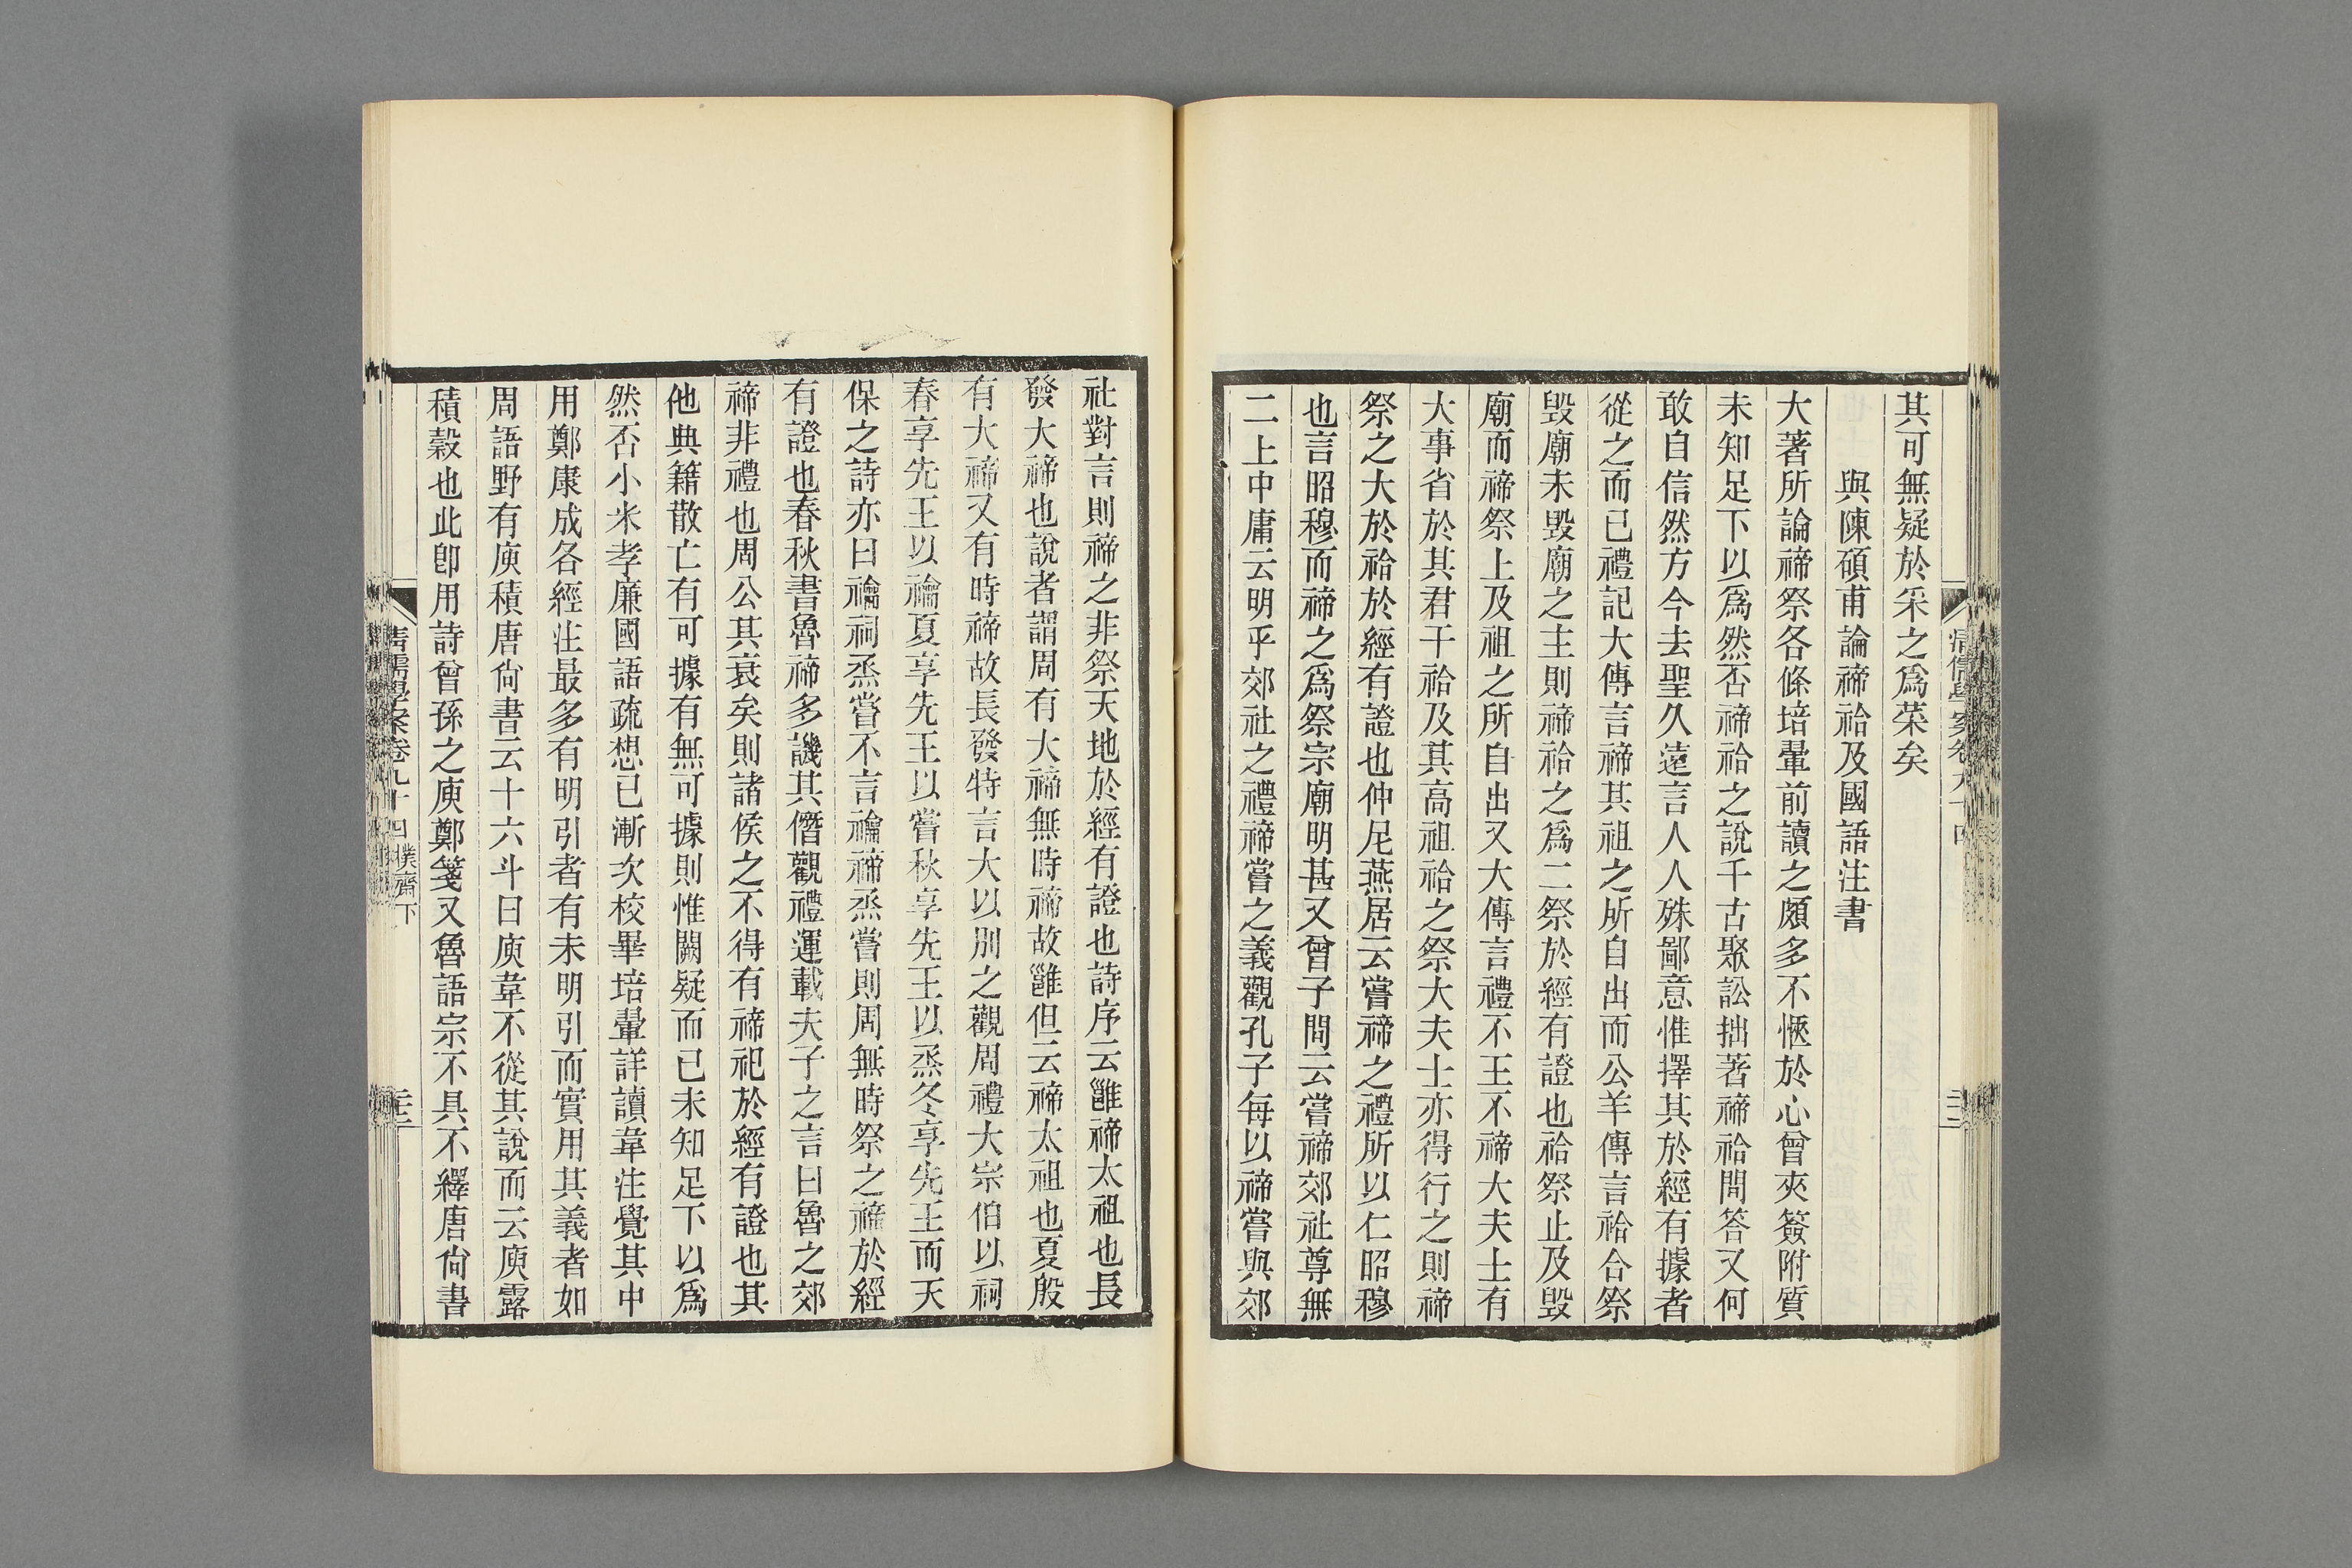 其可無疑於采之爲榮矣
與陳碩甫論禘祫及國語注書
大著所論禘祭各條培翬前讀之頗多不愜於心曾夾簽附質
未知足下以爲然否禘祫之說千古聚訟拙著禘祫問答又何
敢自信然方今去聖久遠言人人殊鄙意惟擇其於經有據者
從之而已禮記大傳言禘其祖之所自出而公羊傳言祫合祭
毀廟未毀廟之主則禘祫之爲二祭於經有證也祫祭止及毀
廟而禘祭上及祖之所自出又大傳言禮不王不禘大夫士有
大事省於其君干祫及其高祖祫之祭大夫士亦得行之則禘
祭之大於祫於經有證也仲尼燕居云嘗禘之禮所以仁昭穆
也言昭穆而禘之爲祭宗廟明甚又曾子問云嘗禘郊社尊無
二上中庸云明乎郊社之禮禘嘗之義觀孔子每以禘嘗與郊
社對言則禘之非祭天地於經有證也詩序云雝禘太祖也長
發大禘也說者謂周有大禘無時禘故雝但云禘太祖也夏殷
有大禘又有時禘故長發特言大以別之觀周禮大宗伯以祠
春享先王以禴夏享先王以嘗秋享先王以烝冬享先王而天
保之詩亦曰禴祠烝嘗不言禴禘烝嘗則周無時祭之禘於經
有證也春秋書魯禘多譏其僭觀禮運載夫子之言曰魯之郊
禘非禮也周公其衰矣則諸侯之不得有禘祀於經有證也其
他典籍散亡有可據有無可據則惟闕疑而已未知足下以爲
然否小米孝廉國語疏想已漸次校畢培翬詳讀韋注覺其中
用鄭康成各經注最多有明引者有未明引而實用其義者如
周語野有庾積唐尙書云十六斗曰庾韋不從其說而云庾露
積穀也此卽用詩曾孫之庾鄭箋又魯語宗不具不繹唐尙書
清儒學案卷九十四 樸齋下